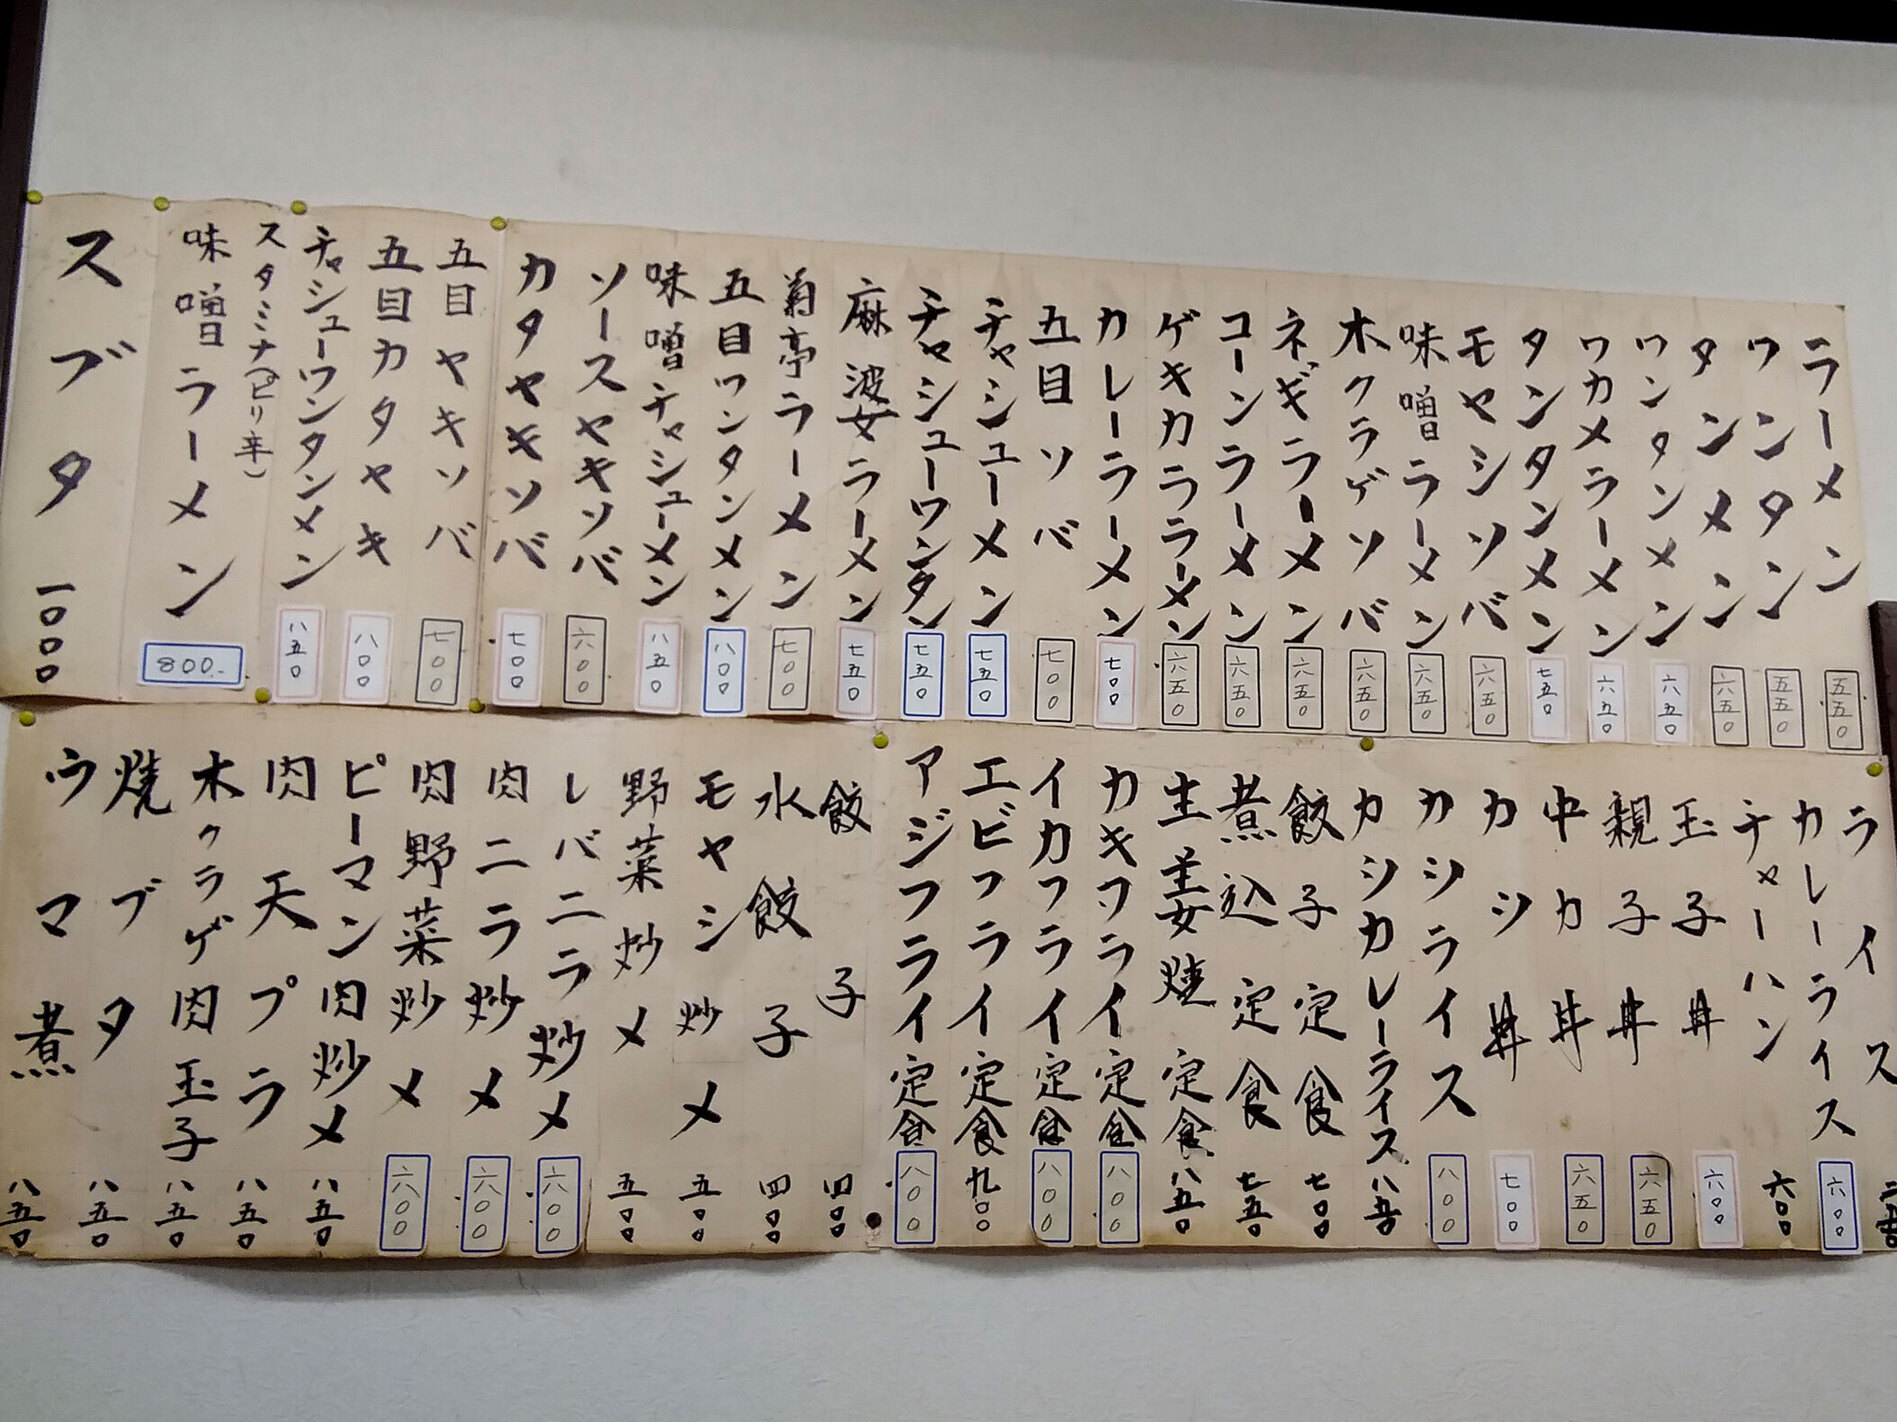 ラーメン 五五〇
ワンタン 五五〇
タンメン 六五〇
ワンタンメン 六五〇
ワカメラーメン 六五〇
タンタンメン 七五〇
モヤシソバ 六五〇
味噌ラーメン 六五〇
木クラゲソバ 六五〇
ネギラーメン 六五〇
コーンラーメン 六五〇
ゲキカララーメン 六五〇
カレーラーメン 七〇〇
五目ソバ 七〇〇
チャシューメン 七五〇
チャシューワンタン 七五〇
麻婆ラーメン 七五〇
菊亭ラーメン 七〇〇
五目ワンタンメン 八〇〇
味噌チャシューメン 八五〇
ソースヤキソバ 六〇〇
カタヤキソバ 七〇〇
五目ヤキソバ 七〇〇
五目カタヤキ 八〇〇
チャシューワンタンメン 八五〇
スタミナ(ピリ辛)
味噌ラーメン 800.-
スブタ 一〇〇〇
ライス
カレーライス 六〇〇
チャーハン 六〇〇
玉子丼 六〇〇
親子丼 六五〇
中カ丼 六五〇
カツ丼 七〇〇
カツライス 八〇〇
カツカレーライス 八五〇
餃子定食 七〇〇
煮込定食 七五〇
生姜焼定食 八五〇
カキフライ定食 八〇〇
イカフライ定食 八〇〇
エビフライ定食 九〇〇
アジフライ定食 八〇〇
餃子 四〇〇
水餃子 四〇〇
モヤシ炒メ 五〇〇
野菜炒メ 五〇〇
レバニラ炒メ 六〇〇
肉ニラ炒メ 六〇〇
肉野菜炒メ 六〇〇
ピーマン肉炒メ 八五〇
肉天プラ 八五〇
木クラゲ肉玉子 八五〇
焼ブタ 八五〇
ウマ煮 八五〇